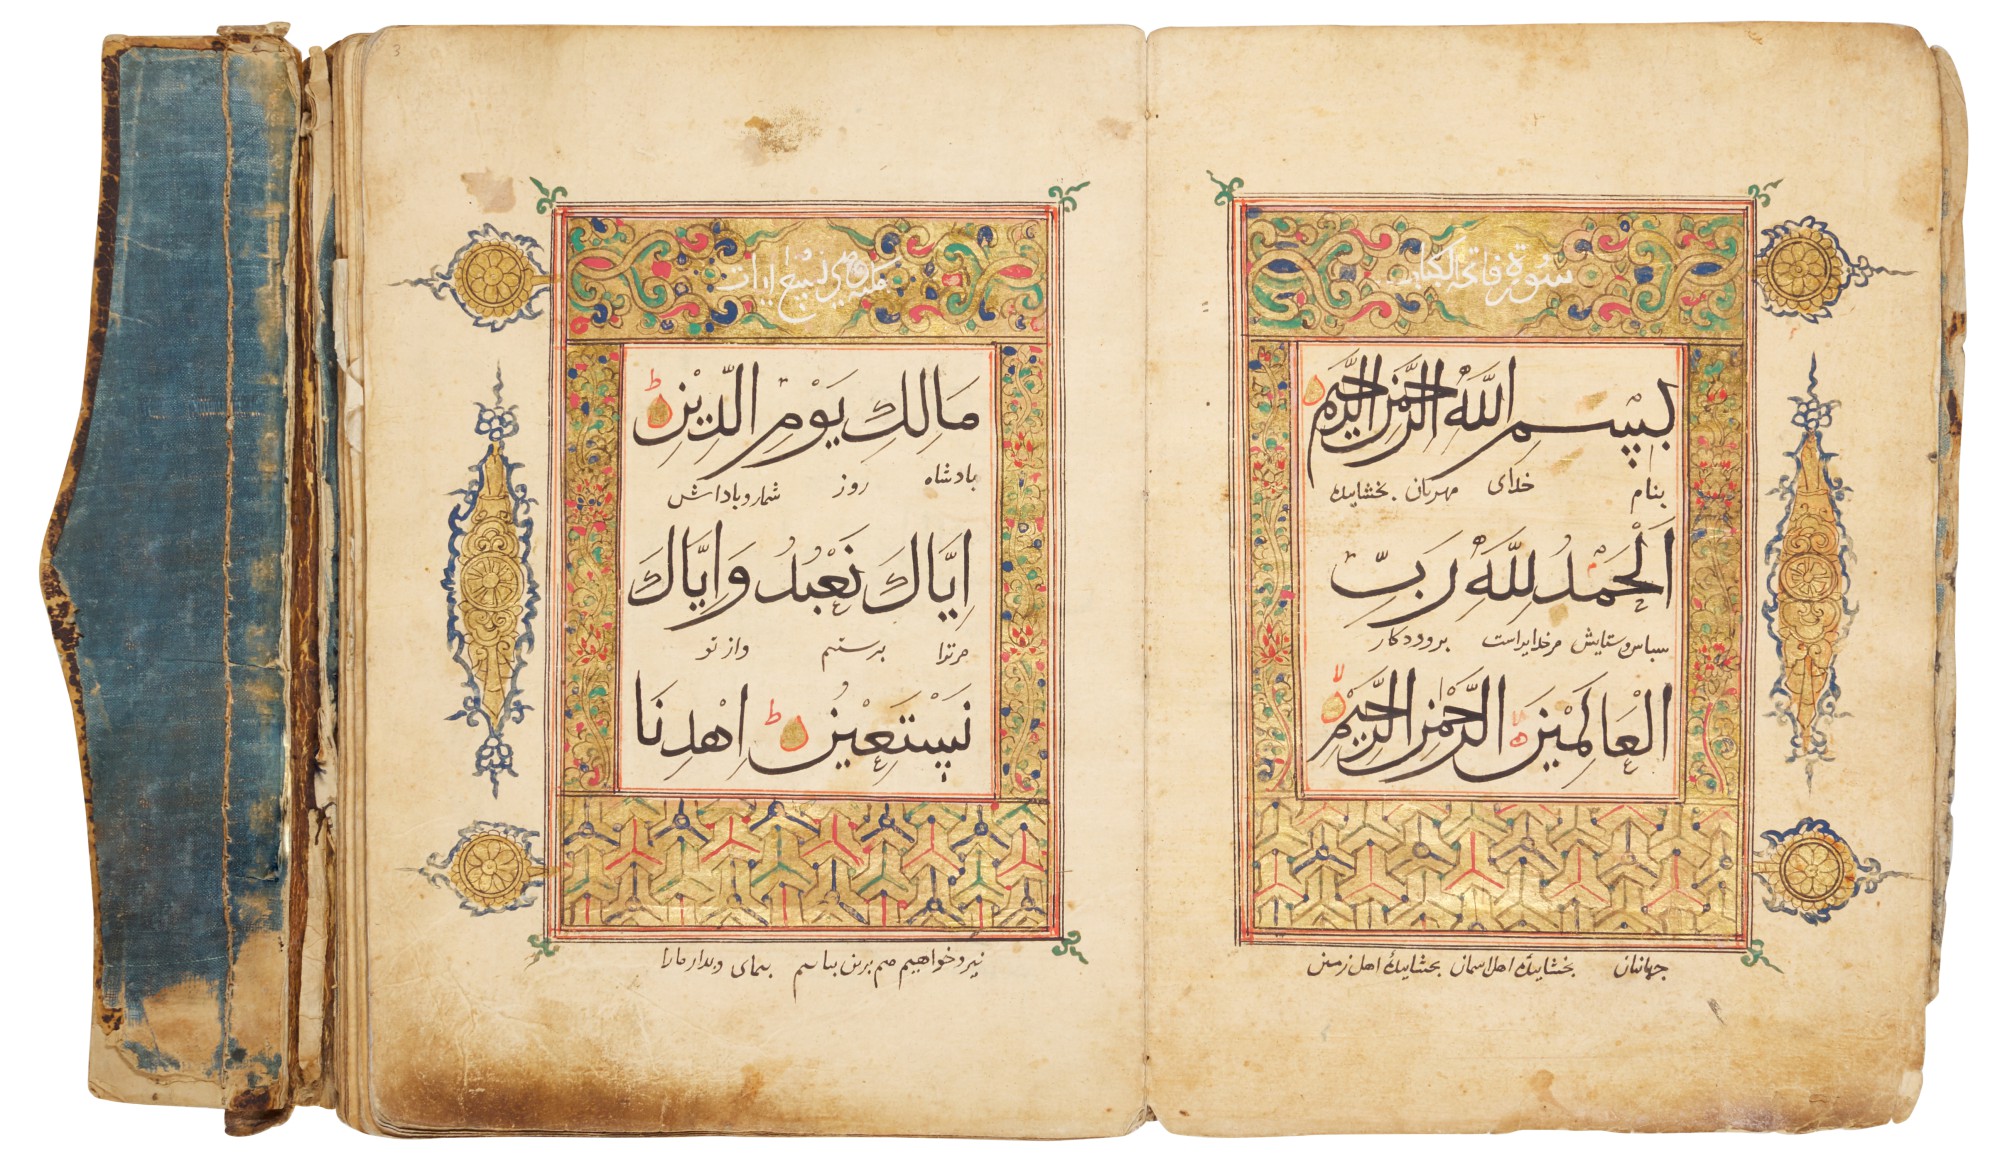 سورة فاتحة الكتاب
بِسْمِ اللَّهِ الرَّحْمٰنِ الرَّحِيمِ
بنام خدای مهربان بخشاینده
اَلْحَمْدُ لِلَّهِ رَبِّ
سباس وستایش مر خدایراست بروردکار
الْعَالَمِيْنَ الرَّحْمٰنِ الرَّحِيْمِ
جهانیان بخشاینده اهل اسمان بخشایندهٔ اهل زمین
مكية وهي سبع ايات
مَالِكِ يَوْمِ الدِّيْنِ
بادشاه روز شمار و باداش
اِيَّاكَ نَعْبُدُ وَاِيَّاكَ
مر ترا برستیم و از تو
نَسْتَعِيْنُ اهْدِنَا
نیرو خواهیم هم برین بنمای و بدار مارا
3